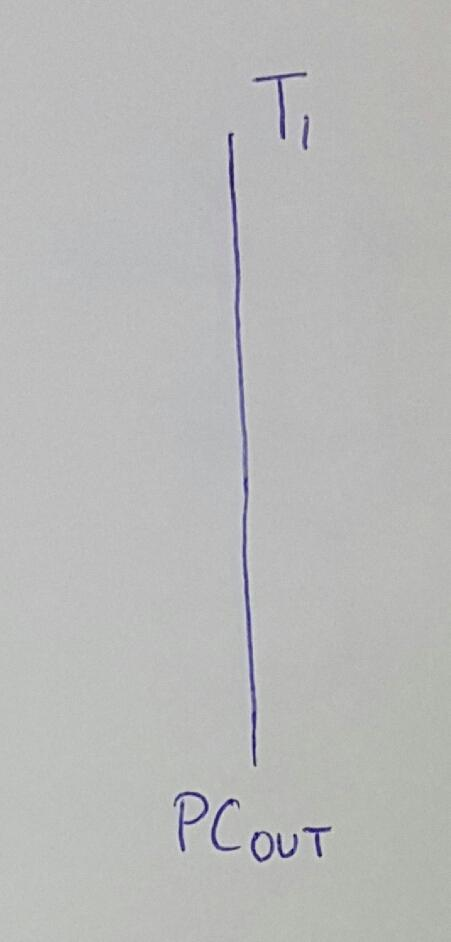 T₁
PC_OUT